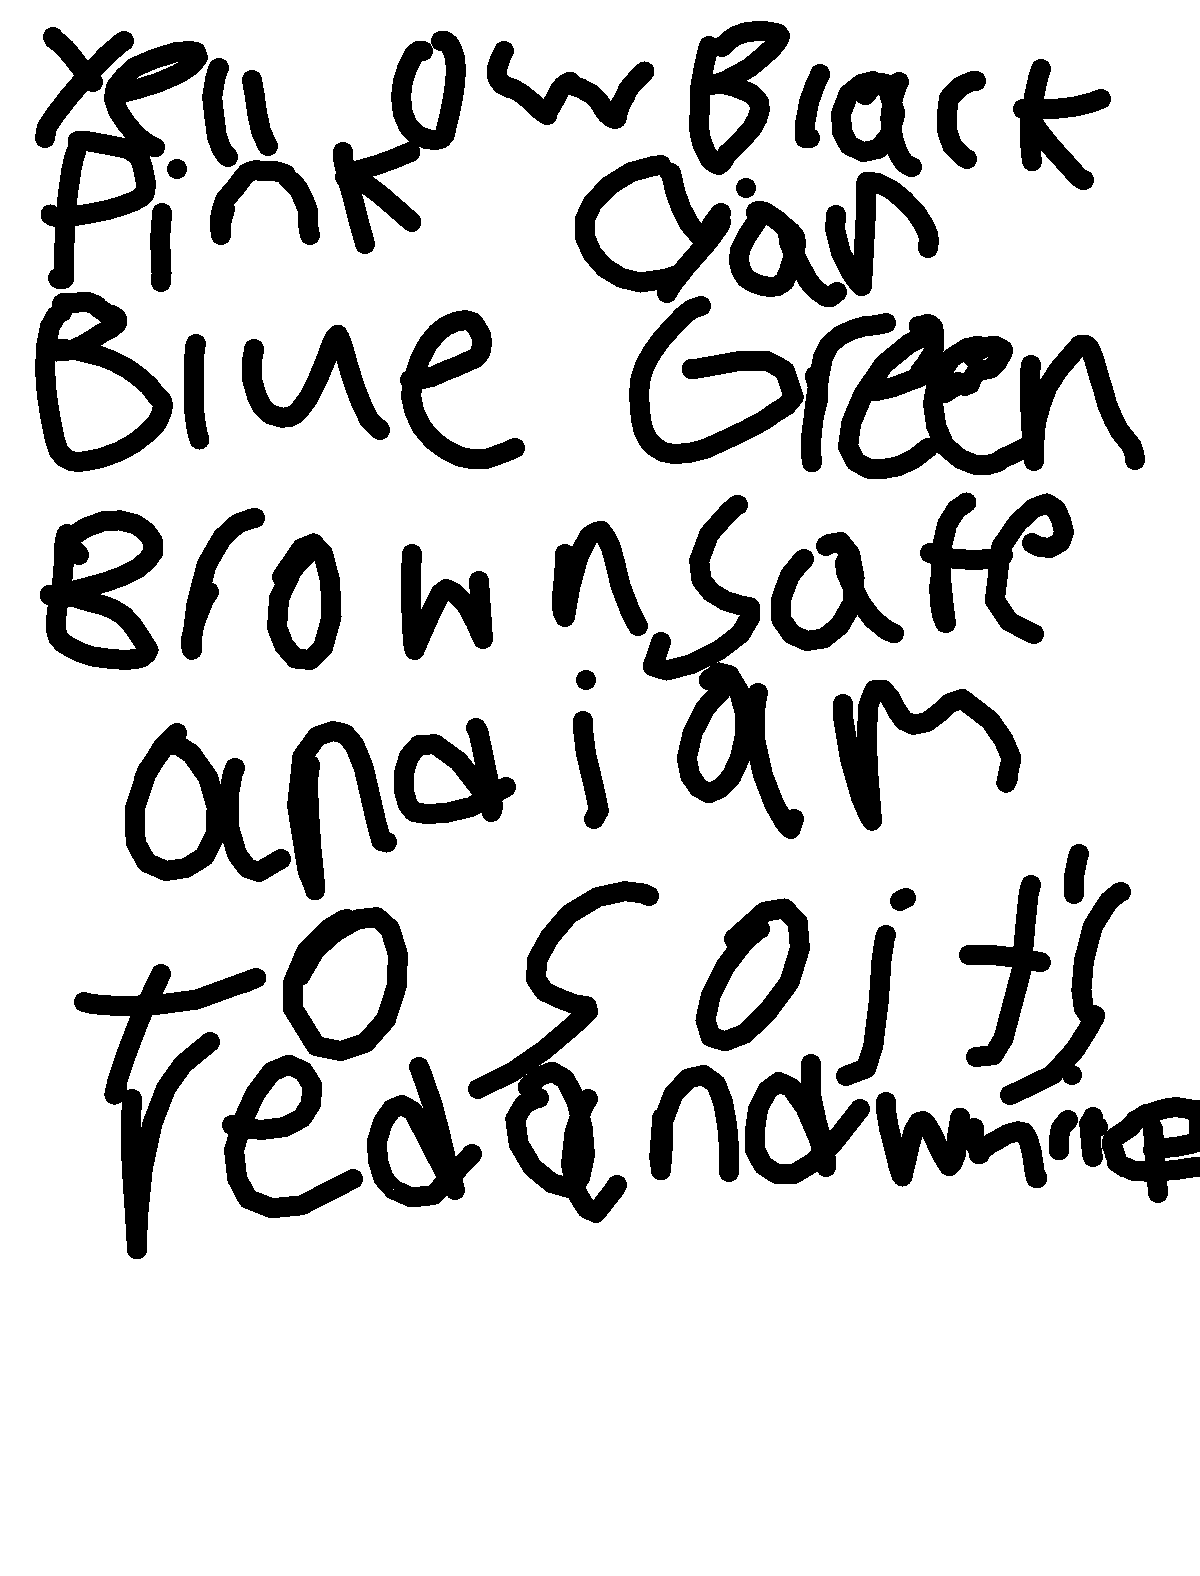 Yellow Black
Pink Cian
Blue Green
Brown Safe
and i am
to So it's
red and white